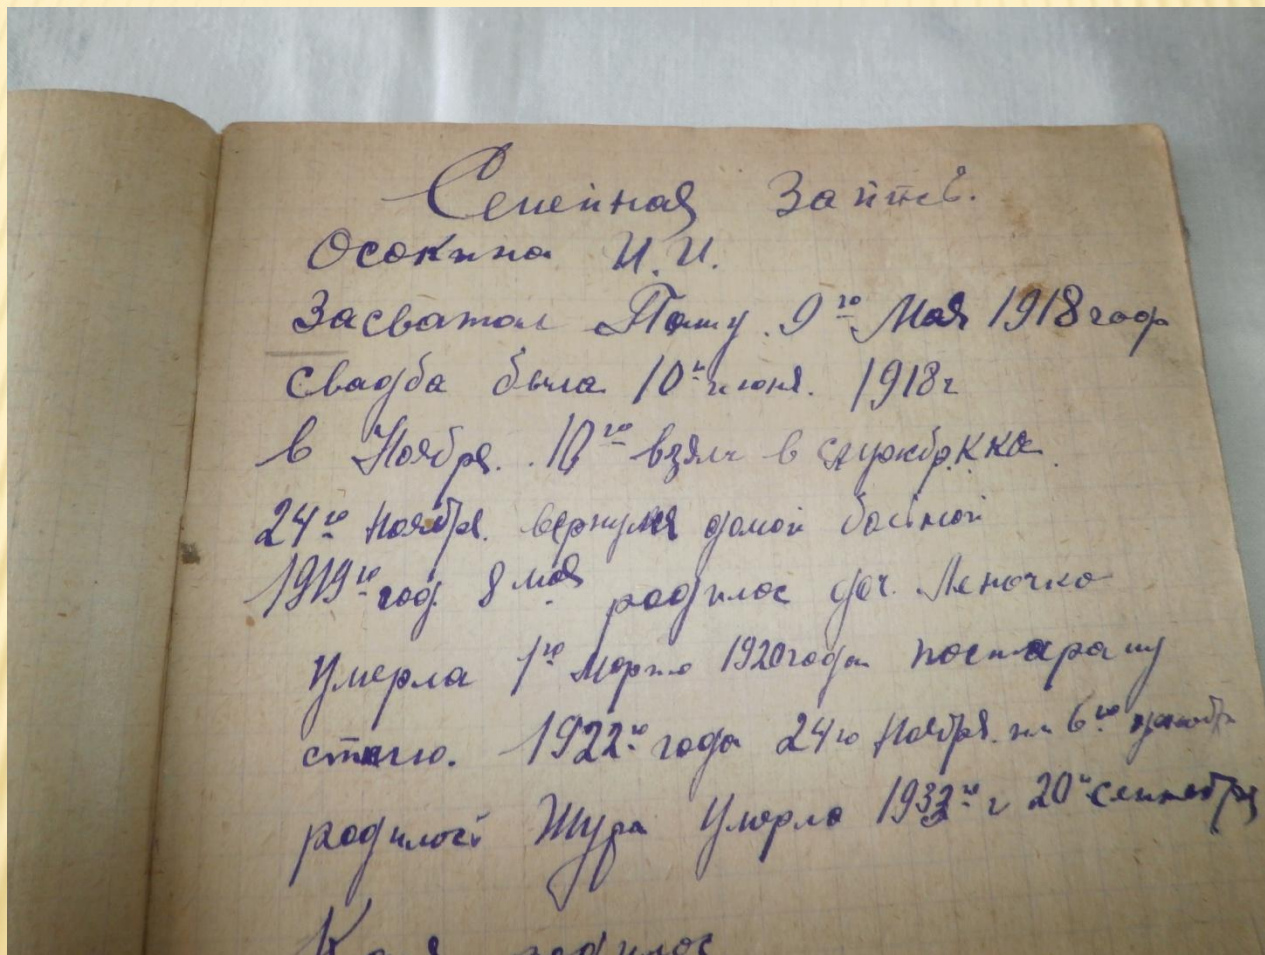 Семейная Запись.
Осокина И.И.
Засватал Пашу. 9го Мая 1918 года
свадба была 10го июня. 1918г
в Ноября. 10го взяли в службу. ККа.
24го Ноября. вернулся домой больной
1919го год. 8 мая родилос доч. Леночка
Умерла 1го Марта 1920 года по старому
стилю. 1922го года 24го Ноября. 6го декабря
родилась Шура Умерла 1932го г 20го сентября
Катя родилос